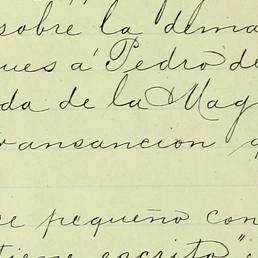 sobre la dema
ues a' Pedro de
da de la Mag
ransancion
ce pequeño con
tiene escrito"